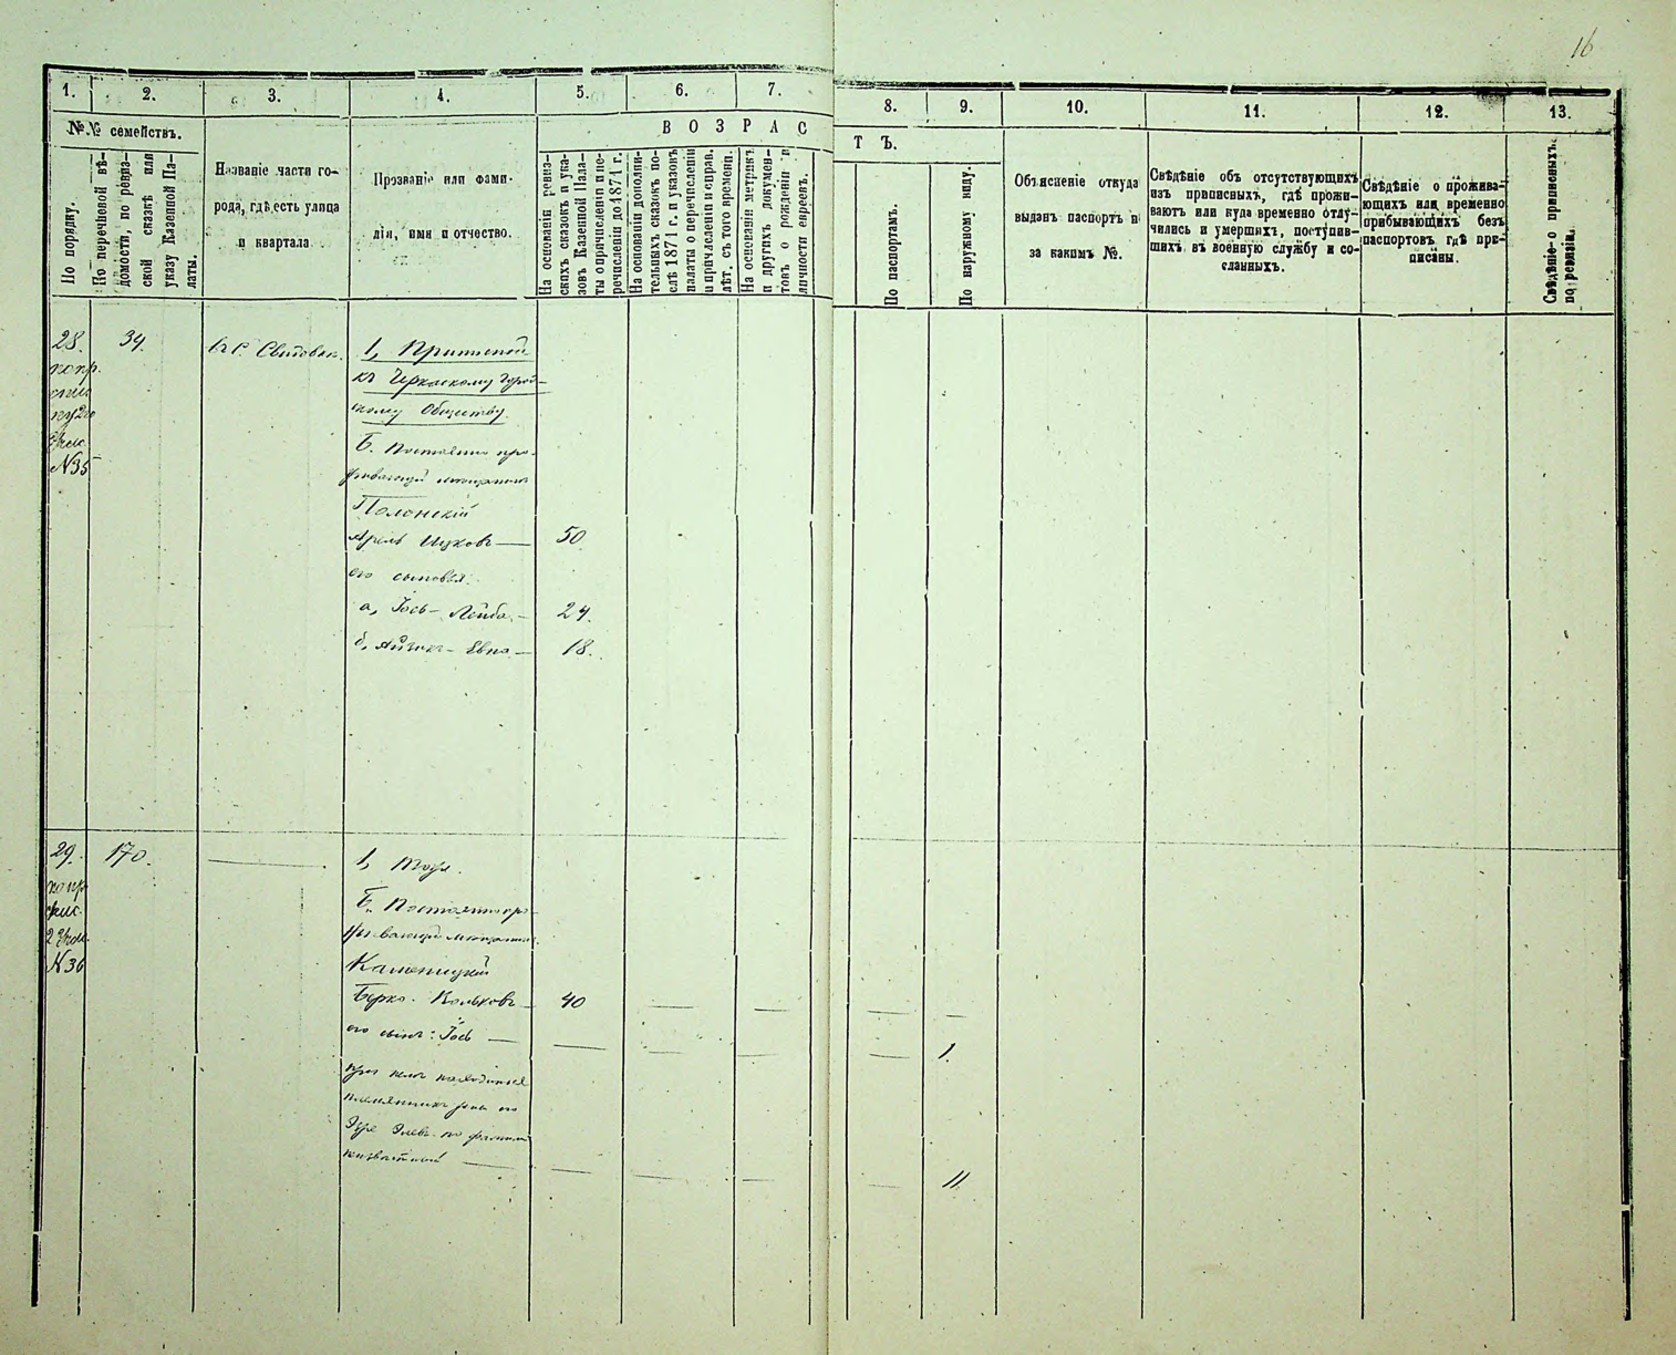 16
1. 2. 3. 4. 5. 6. 7. 8. 9. 10. 11. 12. 13.
№№ семействъ.
По порядку.
По перечневой вѣ-
домости, по ревиз-
ской сказкѣ или
указу Казенной Па-
латы.
Названіе части го-
рода, гдѣ есть улица
и квартала
Прозваніе или фами-
лія, имя и отчество.
ВОЗРАСТЪ.
На основаніи ревиз-
скихъ сказокъ и ука-
зовъ Казенной Пала-
ты о причисленіи и пе-
речисленіи до 1874 г.
На основаніи дополни-
тельныхъ сказокъ по-
слѣ 1874 г. и указовъ
палаты о перечисленіи
и причисленіи и справ.
лѣт. съ того времени.
На основаніи метрикъ
и другихъ докумен-
товъ о рожденіи и
личности евреевъ.
По паспортамъ.
По наружному виду.
Объясненіе откуда
выданъ паспортъ и
за какимъ №.
Свѣдѣніе объ отсутствующихъ
изъ приписныхъ, гдѣ прожи-
ваютъ или куда временно отлу-
чились и умершихъ, поступив-
шихъ въ военную службу и со-
сланныхъ.
Свѣдѣніе о прожива-
ющихъ или временно
прибывающихъ безъ
паспортовъ гдѣ при-
писаны.
Свѣдѣніе о приписныхъ
по ревизіи.
28. 34. Свидовок.
1, Приписной
къ Черкаскому Город-
скому Обществу
Б. Постоянно про-
живающій мѣщанинъ
№35
Полонскій
Арель Ицковъ — 50
его сыновья:
а, Іось-Лейба — 24.
б, Айзикъ-Евна — 18.
29. 170. —
1, Тоже.
Б. Постоянно про-
живающій мѣщанинъ
№36
Каменицкій
Берко Вольковъ — 40 — — — —
его сынъ: Іось — — — — — 1.
при немъ находится
племянникъ
по фамиліи
неизвѣстный — — — — — 11